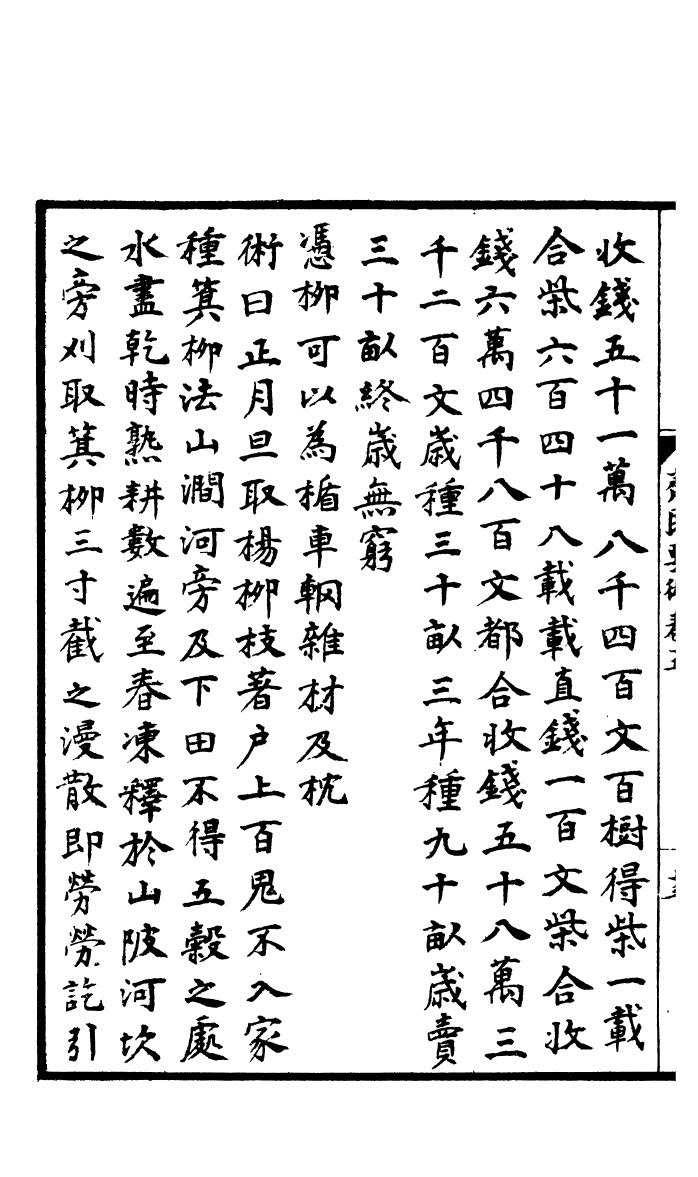 收錢五十一萬八千四百文百樹得柴一載
合柴六百四十八載載直錢一百文柴合收
錢六萬四千八百文都合收錢五十八萬三
千二百文歲種三十畝三年種九十畝歲賣
三十畝終歲無窮
憑柳可以為楯車輞雜材及枕
術曰正月旦取楊柳枝著户上百鬼不入家
種箕柳法山澗河旁及下田不得五榖之處
水盡乾時熟耕數遍至春凍釋於山陂河坎
之旁刈取箕柳三寸截之漫散即勞勞訖引